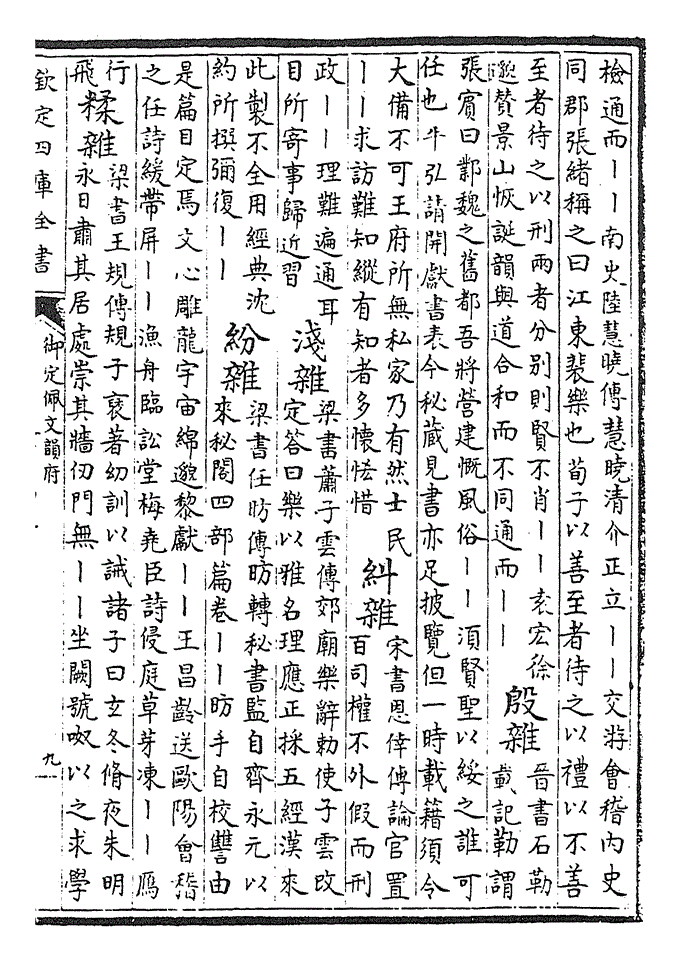 檢通而丨丨南史陸慧曉傳慧曉清介正立丨丨交游會稽内史
同郡張緒稱之曰江東裴樂也荀子以善至者待之以禮以不善
至者待之以刑兩者分别則賢不肖丨丨袁宏徐
邈贊景山恢誕韻與道合和而不同通而丨丨
殷雜
晉書石勒
載記勒謂
張賓曰鄴魏之舊都吾將營建慨風俗丨丨須賢聖以綏之誰可
任也牛弘請開獻書表今秘藏見書亦足披覽但一時載籍須令
大備不可王府所無私家乃有然士民
丨丨求訪難知縱有知者多懷恡惜
糾雜
宋書恩倖傳論官置
百司權不外假而刑
政丨丨理難遍通耳
目所寄事歸近習
淺雜
梁書蕭子雲傳郊廟樂辭勅使子雲改
定答曰樂以雅名理應正採五經漢來
此製不全用經典沈
約所撰彌復丨丨
紛雜
梁書任昉傳昉轉秘書監自齊永元以
來秘閣四部篇卷丨丨昉手自校讐由
是篇目定焉文心雕龍宇宙綿邈黎獻丨丨王昌齡送歐陽會稽
之任詩緩帶屏丨丨漁舟臨訟堂梅堯臣詩侵庭草芽凍丨丨鴈
行
飛
糅雜
梁書王規傳規子褒著幼訓以誡諸子曰玄冬脩夜朱明
永日肅其居處崇其牆仞門無丨丨坐闕號呶以之求學
欽定四庫全書
御定佩文韻府
九